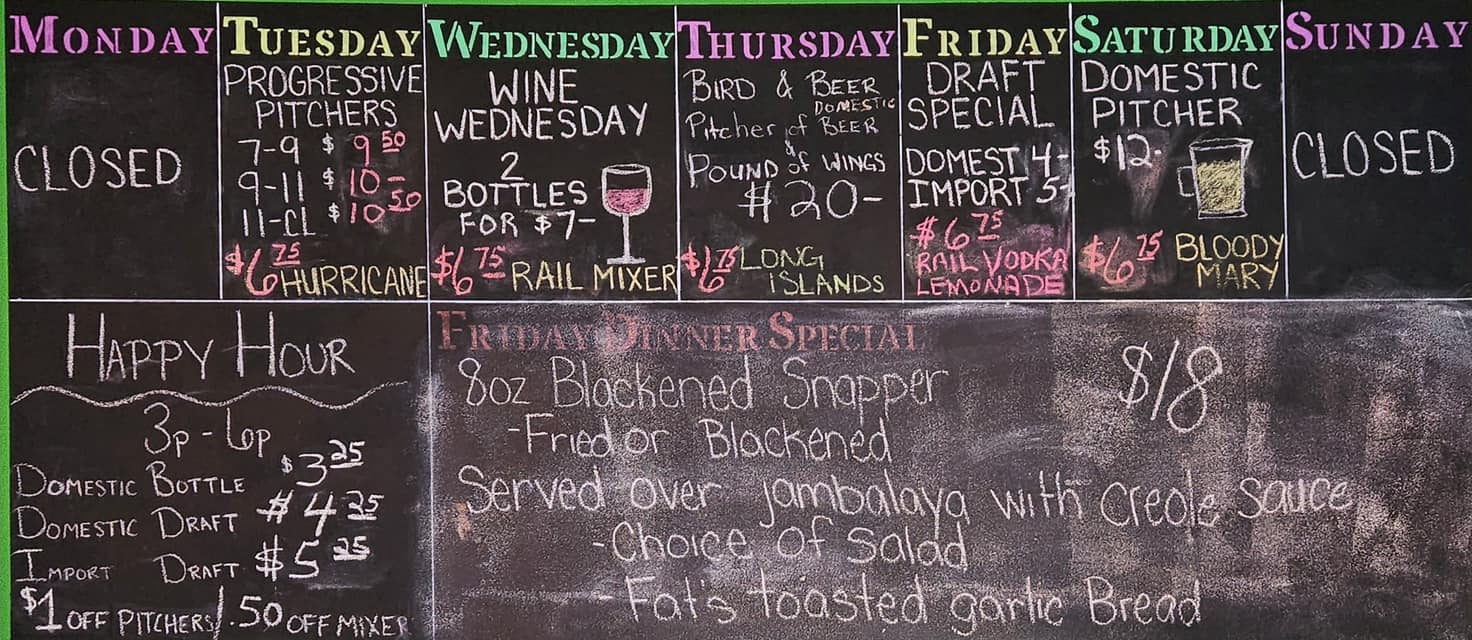 MONDAY
CLOSED
TUESDAY
PROGRESSIVE
PITCHERS
7-9 $ 9 50
9-11 $ 10-
11-CL $ 10 50
$6 75
HURRICANE
WEDNESDAY
WINE
WEDNESDAY
2
BOTTLES
FOR $7-
$6 75 RAIL MIXER
THURSDAY
BIRD & BEER
DOMESTIC
Pitcher of BEER
&
POUND of WINGS
$20-
$6 75 LONG
ISLANDS
FRIDAY
DRAFT
SPECIAL
DOMEST 4-
IMPORT 5-
$6 75
RAIL VODKA
LEMONADE
SATURDAY
DOMESTIC
PITCHER
$12-
$6 75 BLOODY
MARY
SUNDAY
CLOSED
HAPPY HOUR
3p-6p
DOMESTIC BOTTLE $3 25
DOMESTIC DRAFT $4 25
IMPORT DRAFT $5 25
$1 OFF PITCHERS/.50 OFF MIXER
FRIDAY DINNER SPECIAL
8oz Blackened Snapper $18
-Fried or Blackened
Served over jambalaya with creole sauce
-Choice of Salad
-Fat's toasted garlic Bread